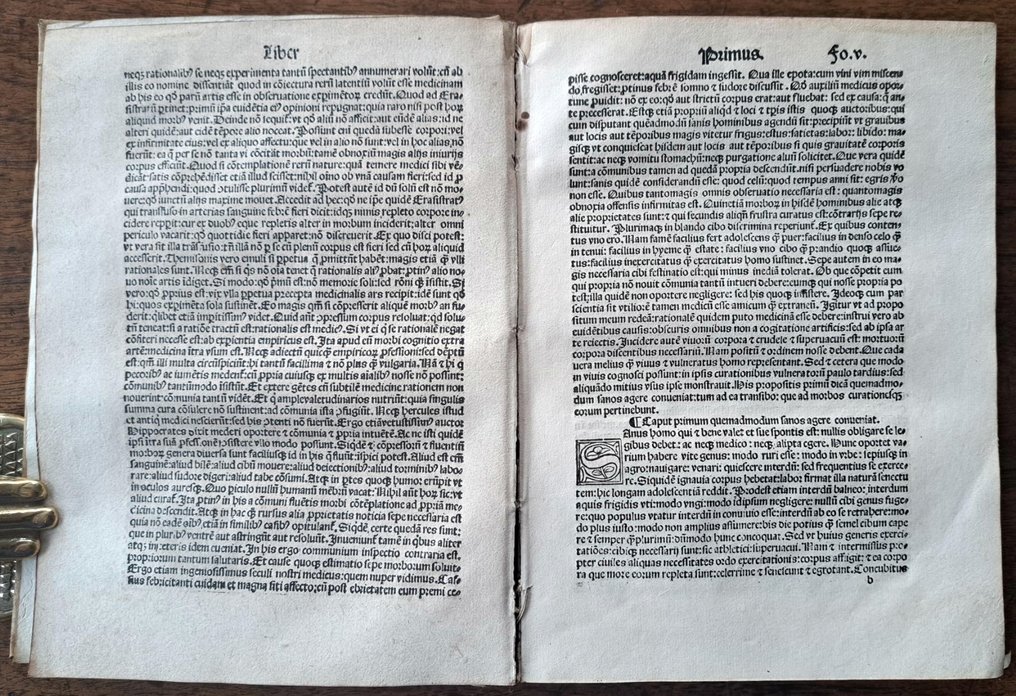 Liber
neqꝫ rationalibꝰ se neqꝫ experimenta tantū spectantibꝰ annumerari volūt: cū ab
illis eo nomine dissentiāt quod in cōiectura rerū latentiū volūt esse medicinam
ab his eo qď parū artis esse in obseruatione expimētoꝝ credūt. Quod ad Era-
sistratū ptinet: primū ipa euidētia eoꝝ opinioni repugnat: quia raro nisi post hoꝝ
aliquid morbꝰ venit. Deinde nō sequiť: vt qď aliū nō afficit: aut eūdē alias: id ne
alteri quidē: aut eidē tēpore alio noceat. Possunt eni quedā subesse corpori: vel
ex infirmitate eius: vel ex aliquo affectu: que vel in alio nō sunt: vel in hoc alias, nō
fuerūt: ea ꝙ per se nō tanta vt cōcitāt morbū: tamē obnoxiū magis alijs iniurijs
corpus efficiūt. Quod si cōtemplationē rerū nature: quā temere medici sibi vē-
dicāt satis cōprehēdisset etiā illud scisset: nihil oīno ob vnā causam fieri: sed id p
causa apprhendi: quod ꝯtulisse plurimū videť. Potest aute id dū solū est nō mo-
uere: qď iunctū alijs maxime mouet. Accedit ad hec: qď ne ipe quidē Erasistratꝰ
qui transfuso in arterias sanguine febrē fieri dicit: idqꝫ nimis repleto corpore in-
cidere reppit: cur ex duobꝰ eque repletis alter in morbum inciderit: alter omni
periculo vacarit: qď quottidie fieri apparet: nō discreuerit. Ex quo disci potest:
vt vera sit illa trāsfusio: tn̄ illā nō p se cū plenū corpus est fieri sed cū hoꝝ aliquid
accesserit. Themisonis vero emuli si ppetua ꝙ pmittūt habēt: magis etiā ꝙ vlli
rationales sunt. Neqꝫ em̄ si qs nō oīa tenet ꝙ rationalis aliꝰ pbat: ptin alio no-
uo noīe artis īdiget. Si modo: qď pmū est: nō memorie soli: sed rōni qꝫ īsistit. Si
vero: qď ppius est: vix vlla ppetua precepta medicinalis ars recipit: idē sunt qď
hi: quos expimēta sola sustinēt. Eo magis qm̄ si cōpresserit aliquē morbꝰ an fu-
derit: qlibet etiā impitissimꝰ videt. Quid aūt: ꝓpressum corpus reloluat: qd solu-
tū teneat: si a ratiōe tractū est: rationalis est medicꝰ. Si vt ei q̄ se rationalē negat
cōfiteri necesse est: ab expientia empiricus est. Ita apud eū morbi cognitio extra
artē: medicina ītra vsum est. Neqꝫ adiectū quicꝙ empiricoꝝ pfessioni: sed dēptū
est: qm̄ illi multa circūspiciūt: hi tantū facillima et nō plus ꝙ vulgaria. Nā et hi q
pecoribꝰ ac iumētis medent̄: cū ꝓpria cuiusqꝫ ex multis aīalibꝰ nosse nō possunt:
cōmunibꝰ tantūmodo īsistūt. Et extere gētes cū subtilē medicine rationem non
nouerint cōmunia tantū vidēt. Et q amplevaletudinarios nutriūt: quia singulis
summa cura cōsulere nō sustinent: ad cōmunia ista ꝯfugiūt. Neqꝫ hercules istud
et antiqꝫ medici nescierūt: sed his ꝓtenti nō fuerūt. Ergo etiā vetustissimꝰ auctor
Hippocrates dixit mederi oportere et cōmunia et ꝓpria intuētē. Ac ne isti quidē
ipsi ītra suā pfessionē ꝓsistere vllo modo possunt. Siquidē et cōpressoꝝ et fluentiū
morboꝝ genera diuersa sunt facilīusqꝫ id in his q fluūt: īspici potest. Aliud est em̄
sanguinē: aliud bilē: aliud cibū mouere: aliud deiectionibꝰ: aliud torminibꝰ labo-
rare: aliud sudore digeri: aliud tabe cōsumi. Atqꝫ in ptes quoqꝫ humor erūpit vt
in oculos auresqꝫ. Quo piculo nullū humanū mēbrū vacat. Nihil aūt hoꝝ sic: vt
aliud curať. Ita ptinꝰ in his a cōmuni fluētis morbi cōtēplatione ad ꝓpriā me-
dicina descendit. Atqꝫ in hac qꝫ rursus alia ꝓprietatis noticia sepe necessaria est
quia nō eadē oībꝰ etiā in similibꝰ casibꝰ opitulant̄. Siqdē, certe quedā res sunt:
que in pluribꝰ ventrē aut astringūt aut resoluūt. Inueniunť tamē in qbus aliter
atqꝫ in ceteris idem eueniat. In his ergo communium inspectio contraria est,
propriorum tantum salutaris. Et cause quoqꝫ estimatio sepe morborum soluit
Ergo etiam ingeniosissimus seculi nostri medicus: quem nuper vidimus. Cas-
sius febricitanti cuidam et magna siti affecto: cū post ebrietatem eum premi ce-
Primus. Fo. v.
pisse cognosceret: aquā frigidam ingessit. Qua ille epota: cum vini vim miscen
do fregisset: ptinus febrē somno et sudore discussit. Qď auxiliū medicus opor-
tune puidit: nō ex eo: qď aut strictū corpus erat: aut fluebat: sed ex causa: ꝙ an-
te precesserat. Estqꝫ etiā proprium aliqd et loci et tpis istis quoqꝫ auctoribus: qui
cum disputant quēadmodū sanis hominibus agendū sit: precipiūt vt grauibus
aut locis aut tēporibus magis vitetur frigus: estus: satietas: labor: libido: ma-
gisqꝫ vt conquiescat hisdem aut locis aut tēporibus si quis grauitatē corporis
sentit: ac neqꝫ vomitu stomachū: neqꝫ purgatione aluū solicitet. Que vera quidē
sunt: a cōmunibus tamen ad quedā propria descendunt. nisi persuadere nobis vo
lunt: sanis quidē considerandū esse: quod celū: quod tempus anni sit: egris vo
non esse. Quibus tantomagis omnis obseruatio necessaria est: quantomagis
obnoxia offensis infirmitas est. Quinetiā morboꝝ in hisdē hominibus alie atqꝫ
alie proprietates sunt: et qui secundis aliqn̄ frustra curatus est: cōtrarijs sepe re-
stituitur. Plurimaqꝫ in blando cibo discrimina reperiunt̄. Ex quibus conten-
tus vno ero. Nam famē facilius fert adolescens ꝙ puer: facilius in denso celo ꝙ
in tenui: facilius in hyeme ꝙ estate: facilius vno cibo ꝙ prandio quoqꝫ assue-
tus: facilius inexercitatus ꝙ exercitatus homo sustinet. Sepe autem in eo ma-
gis necessaria cibi festinatio est: qui minus inediā tolerat. Ob que cōpetit eum
qui propria nō nouit cōmunia tantū intueri debere: eumqꝫ qui nosse propria po
test: illa quidē non oportere negligere: sed his quoqꝫ insistere. Ideoqꝫ cum par
scientia sit vtiliorē tamen medicū esse amicum ꝙ extraneū. Igitur vt ad propo-
situm meum redeā: rationalē quidem puto medicinā esse debere: instrui vero ab
euidētibus causis: obscuris omnibus non a cogitatione artificis: sed ab ipsa ar
te reiectis. Incidere autē viuoꝝ corpora et crudele et superuacuū est: mortuoꝝ
corpora discentibus necessariū. Nam positū et ordinem nosse debent. Que cada
uera melius ꝙ viuus et vulneratus homo representant. Sed et cetera que modo
in viuis cognosci possunt: in ipsis curationibus vulneratoꝝ paulo tardius: sed
aliquādo mitius vsus ipse monstrauit. His propositis primū dicā quemadmo-
dum sanos agere conueniat: tum ad ea transibo: que ad morbos curationesqꝫ
eorum pertinebunt.
¶ Caput primum quemadmodum sanos agere conueniat.
SAnus homo qui et bene valet et sue spontis est: nullis obligare se le-
gibus debet: ac neqꝫ medico: neqꝫ alipta egere. Hunc oportet va-
rium habere vite genus: modo ruri esse: modo in vrbe: sepiusqꝫ in
agro: nauigare: venari: quiescere interdū: sed frequentius se exerce-
re. Siquidē ignauia corpus hebetat: labor firmat illa naturā senectu
tem: hic longam adolescentiā reddit. Prodest etiam interdū balneo: interdum
aquis frigidis vti: modo vngi: modo idipsum negligere: nullū cibi genus fuge-
re: quo populus vtatur interdū in conuiuio esse: interdū ab eo se retrahere: mo-
do plus iusto: modo non amplius assumere: bis die potius ꝙ semel cibum cape
re et semper ꝙplurimū: dūmodo hunc concoquat. Sed vt huius generis exerci-
tatiōes: cibiqꝫ necessarij sunt: sic athletici: superuacui. Nam et intermissus pro-
pter ciuiles aliquas necessitates ordo exercitationis: corpus affligit: et ea corpo
ra que more eorum repleta sunt: celerrime et senescunt et egrotant. Concubitus
b